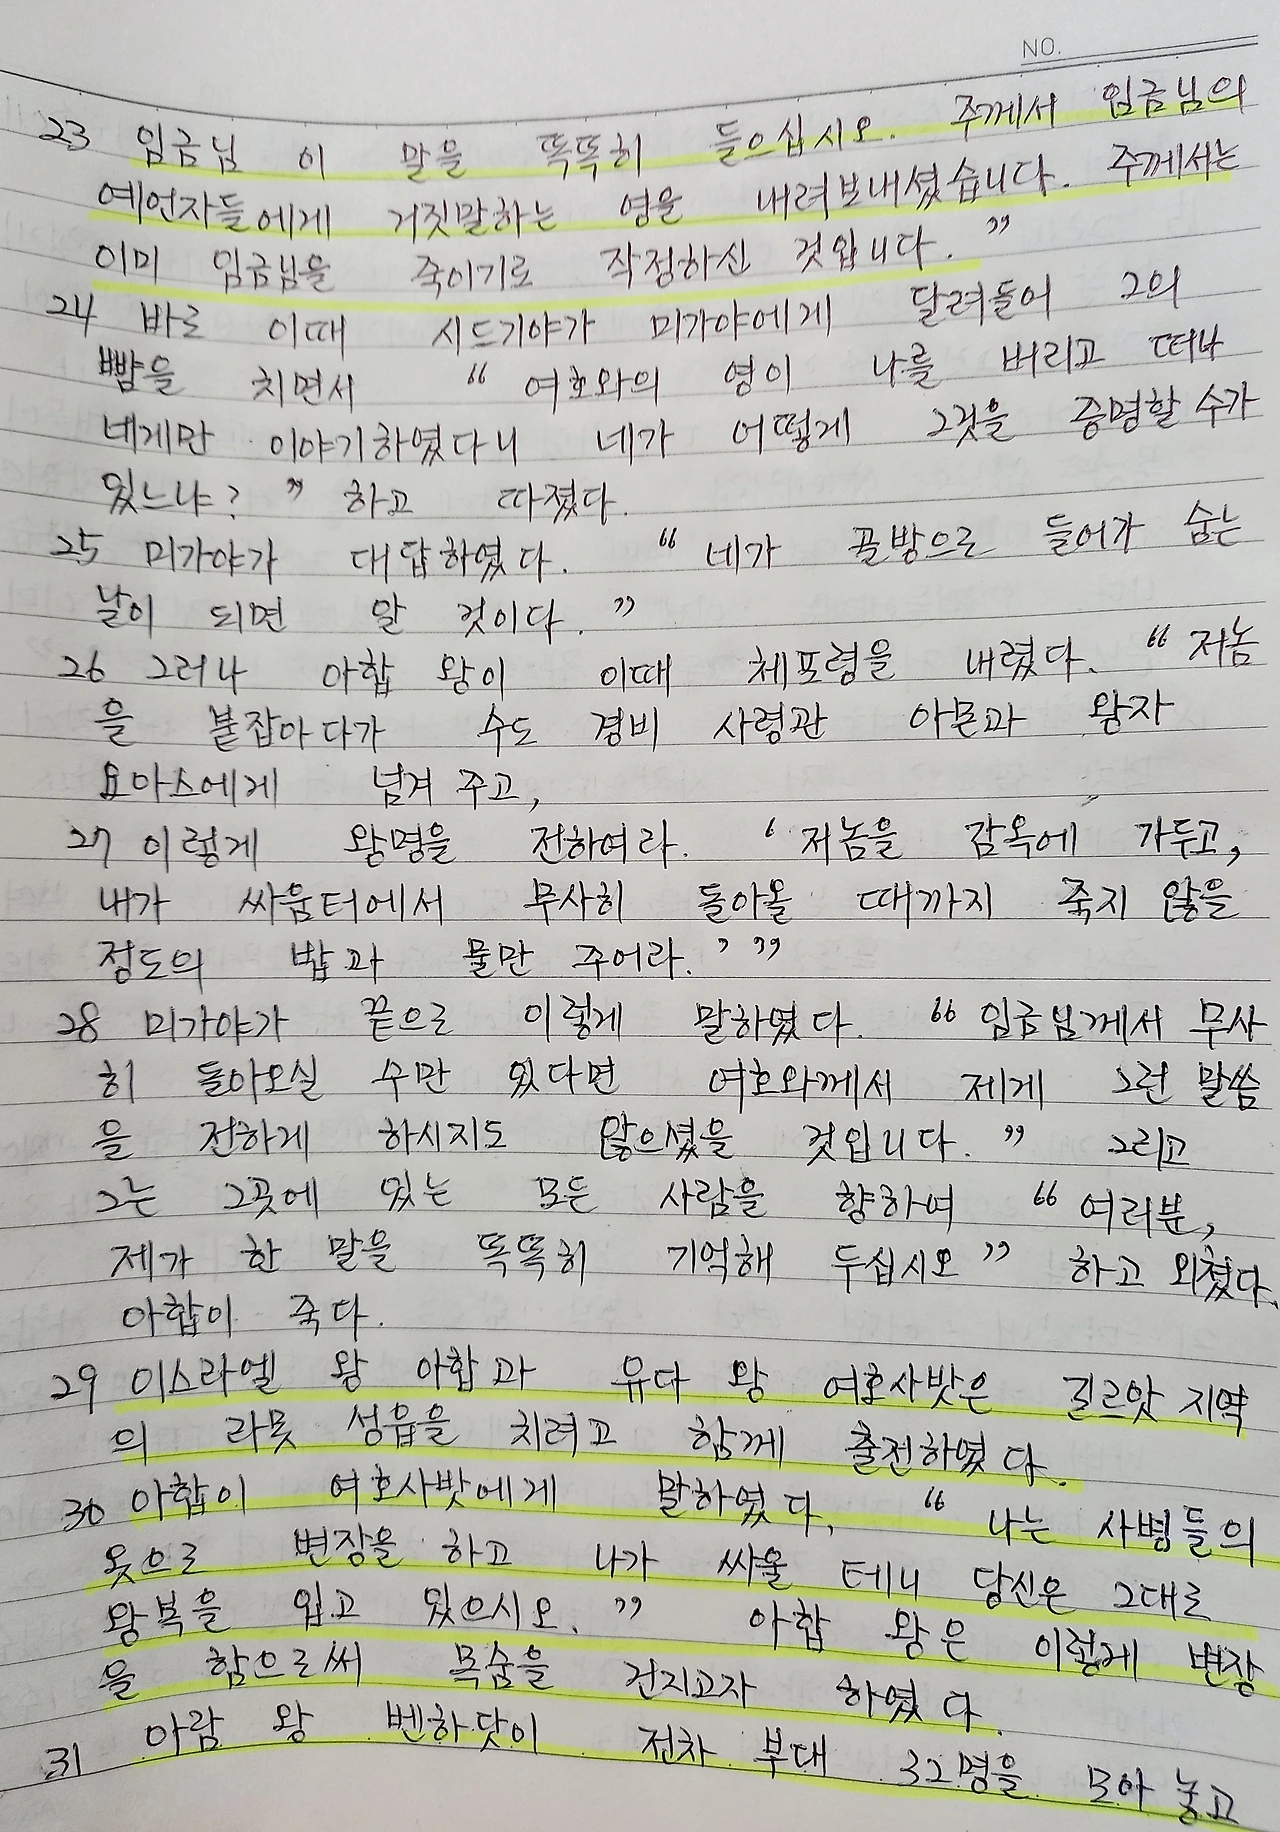 NO.
23 임금님 이 말을 똑똑히 들으십시오. 주께서 임금님의
예언자들에게 거짓말하는 영을 내려보내셨습니다. 주께서는
이미 임금님을 죽이기로 작정하신 것입니다. ”
24 바로 이때 시드기야가 미가야에게 달려들어 그의
뺨을 치면서 “ 여호와의 영이 나를 버리고 떠나
네게만 이야기하였다니 네가 어떻게 그것을 증명할 수가
있느냐? ” 하고 따졌다.
25 미가야가 대답하였다. “ 네가 골방으로 들어가 숨는
날이 되면 알 것이다. ”
26 그러나 아합 왕이 이때 체포령을 내렸다. “ 저놈
을 붙잡아다가 수도 경비 사령관 아몬과 왕자
요아스에게 넘겨 주고,
27 이렇게 왕명을 전하여라. ‘ 저놈을 감옥에 가두고,
내가 싸움터에서 무사히 돌아올 때까지 죽지 않을
정도의 밥과 물만 주어라. ’ ”
28 미가야가 끝으로 이렇게 말하였다. “ 임금님께서 무사
히 돌아오실 수만 있다면 여호와께서 제게 그런 말씀
을 전하게 하시지도 않으셨을 것입니다. ” 그리고
그는 그곳에 있는 모든 사람을 향하여 “ 여러분,
제가 한 말을 똑똑히 기억해 두십시오 ” 하고 외쳤다.
아합이 죽다.
29 이스라엘 왕 아합과 유다 왕 여호사밧은 길르앗 지역
의 라못 성읍을 치려고 함께 출전하였다.
30 아합이 여호사밧에게 말하였다. “ 나는 사병들의
옷으로 변장을 하고 나가 싸울 테니 당신은 그대로
왕복을 입고 있으시오. ” 아합 왕은 이렇게 변장
을 함으로써 목숨을 건지고자 하였다.
31 아람 왕 벤하닷이 전차 부대 32명을 모아 놓고